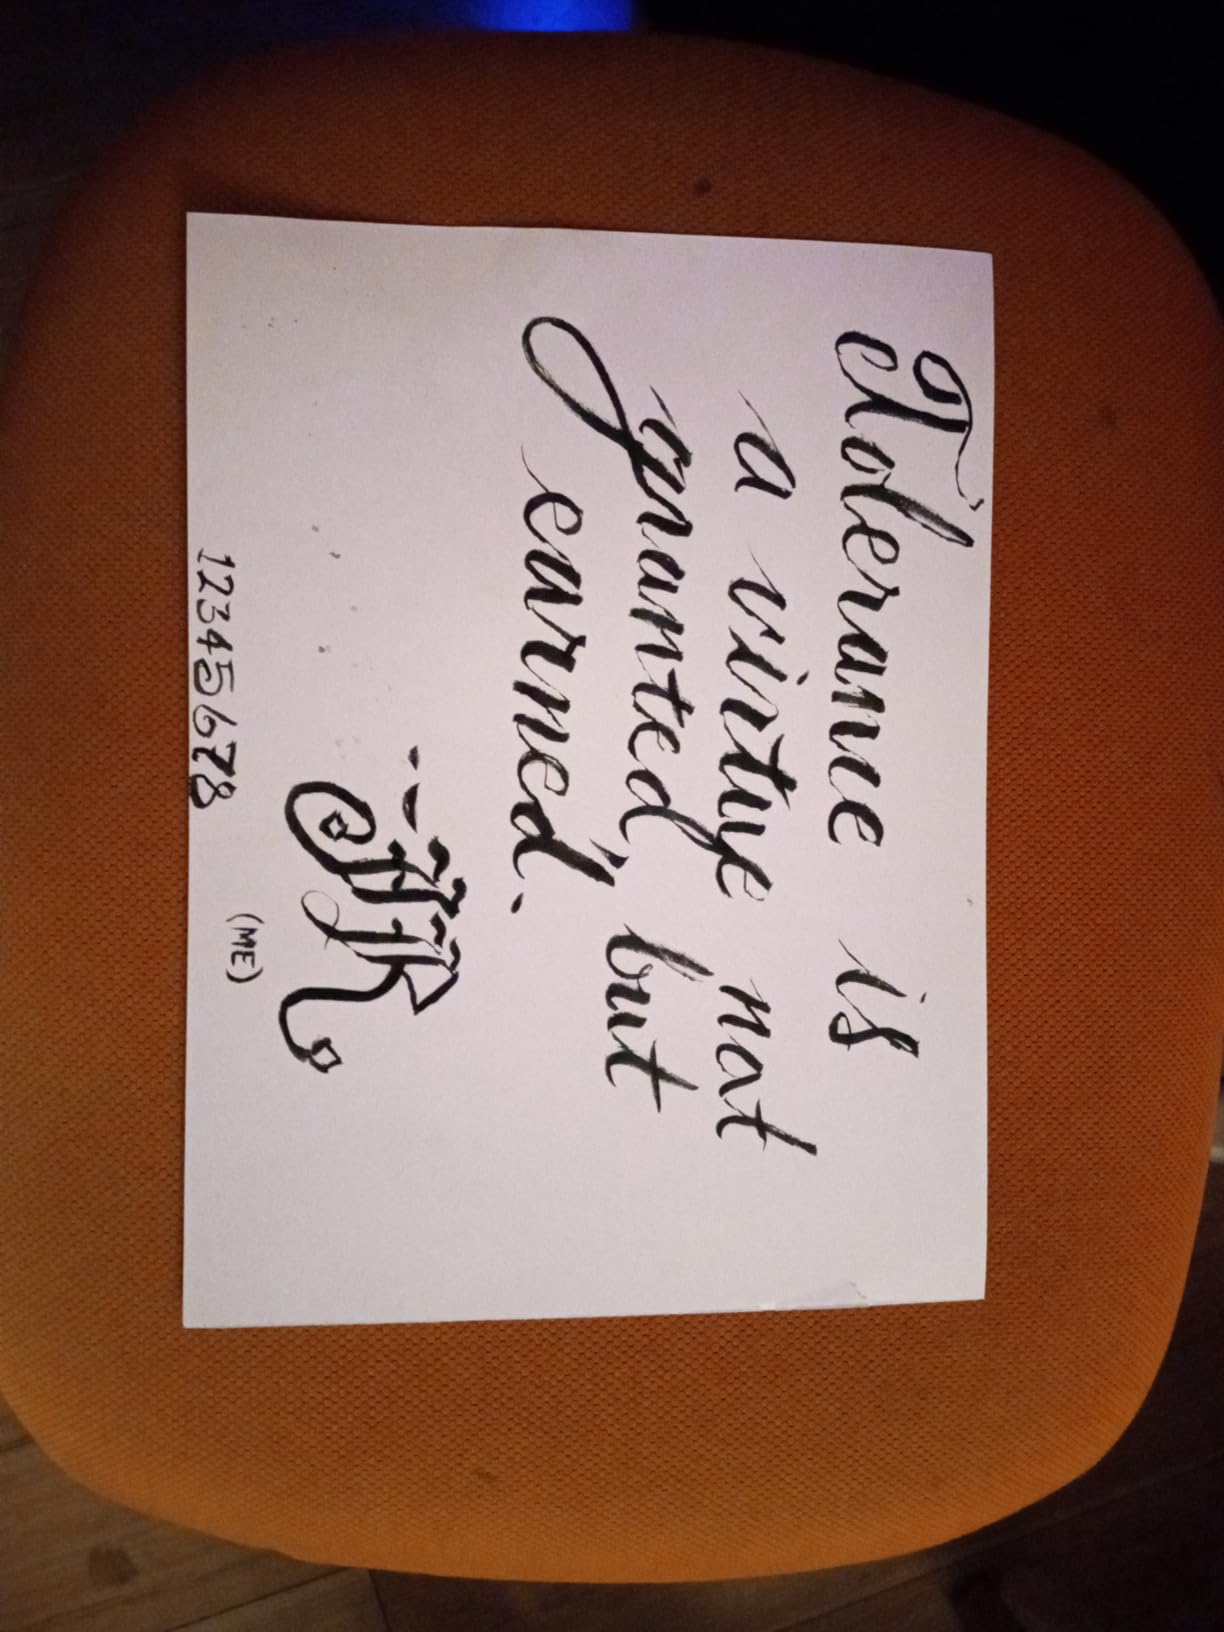 Tolerance is
a virtue not
granted, but
earned.
(ME)
12345678